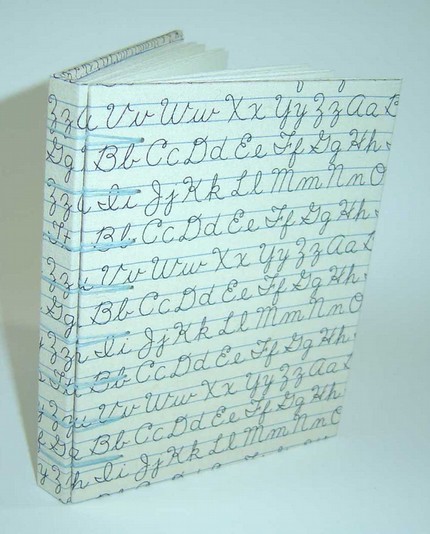 Zz Vv Ww Xx Yy Zz Aa B
Gg Bb Cc Dd Ee Ff Gg Hh
Zz Ii Jj Kk Ll Mm Nn O
Bb Cc Dd Ee Ff Gg Hh
Zz Vv Ww Xx Yy Zz Aa B
Gg Bb Cc Dd Ee Ff Gg Hh
Zz Ii Jj Kk Ll Mm Nn O
Bb Cc Dd Ee Ff Gg Hh
Zz Vv Ww Xx Yy Zz Aa B
Gg Bb Cc Dd Ee Ff Gg Hh
Zz Ii Jj Kk Ll Mm Nn O